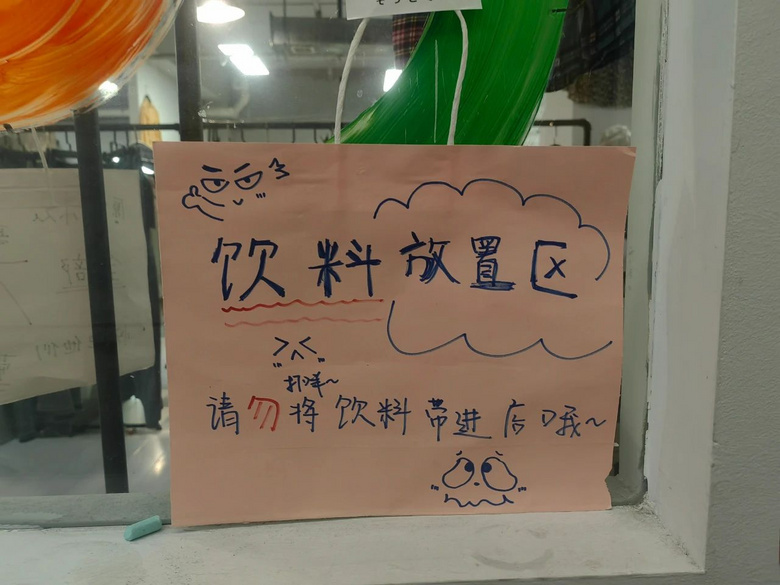 饮料放置区
请勿将饮料带进店哦~